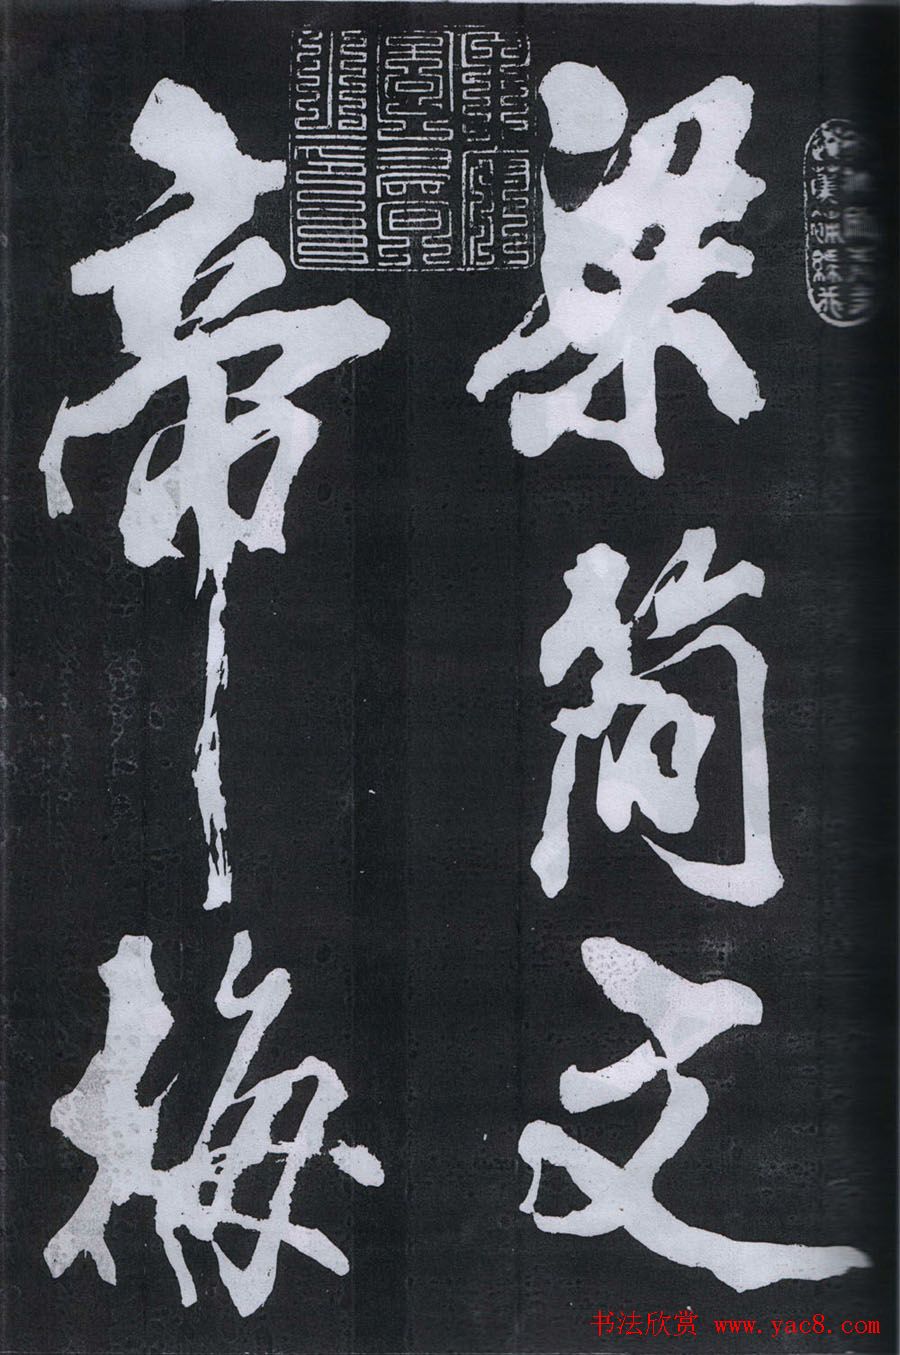 梁简文
帝梅
书法欣赏 www.yac8.com